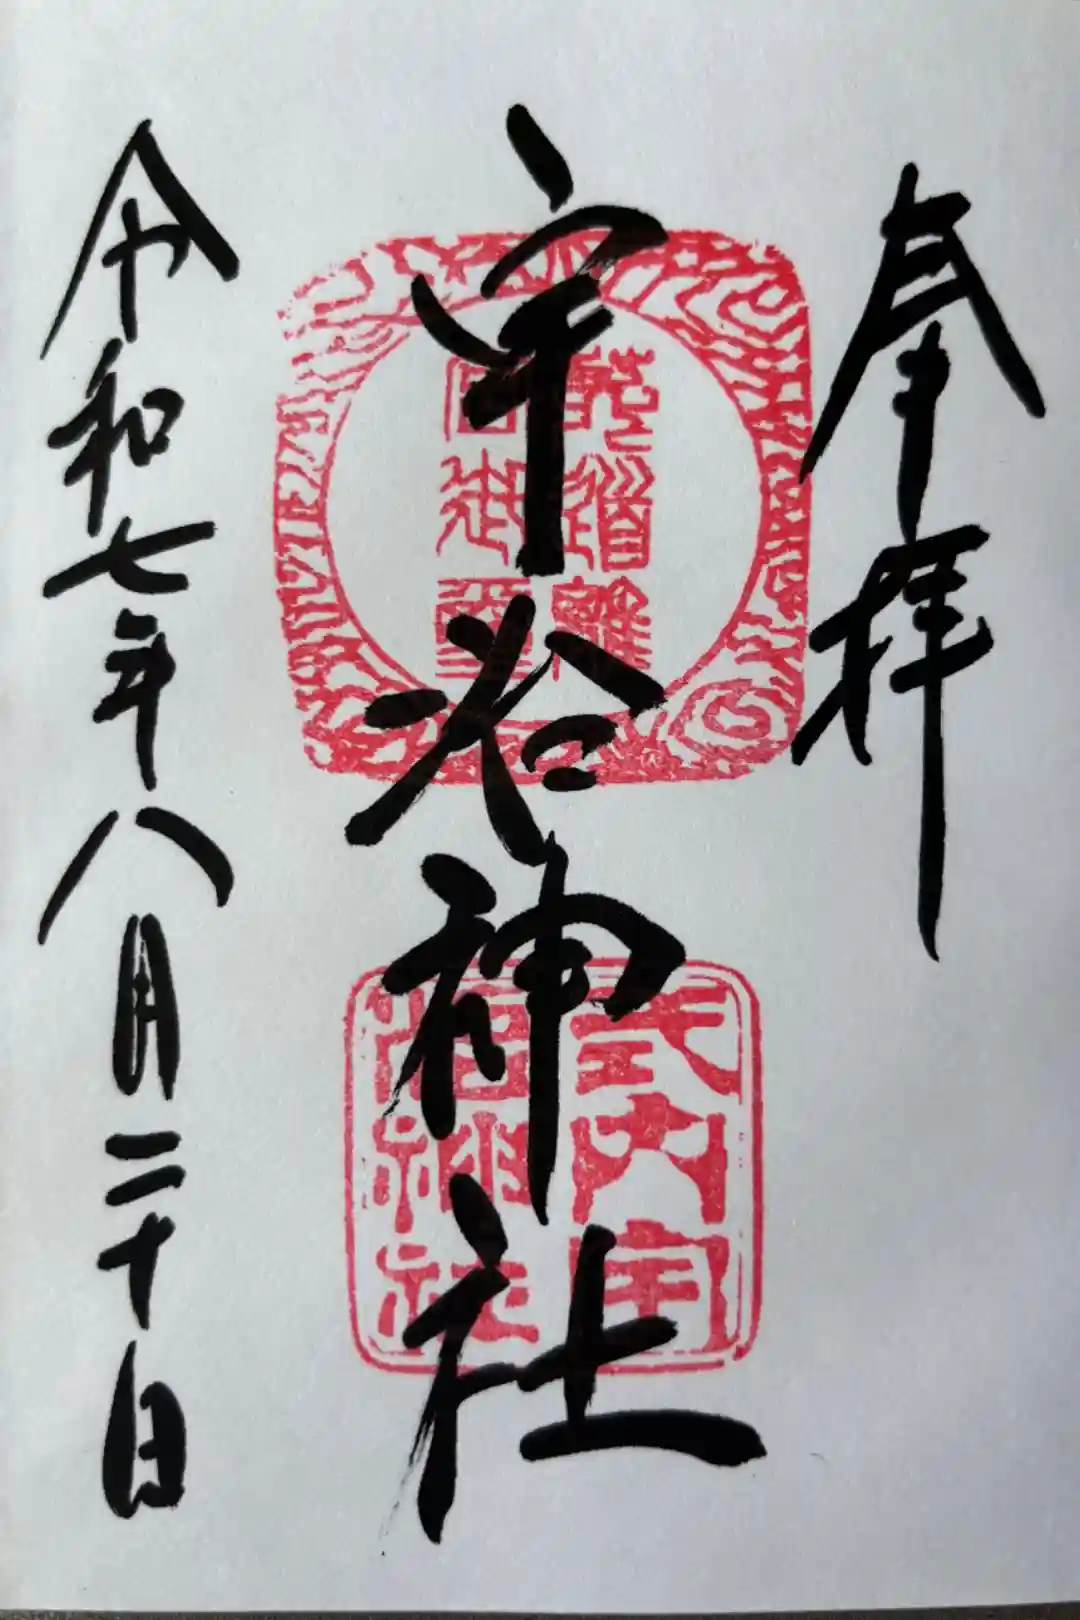 奉拝
宇治神社
式内宇
治神社
令和七年八月二十日